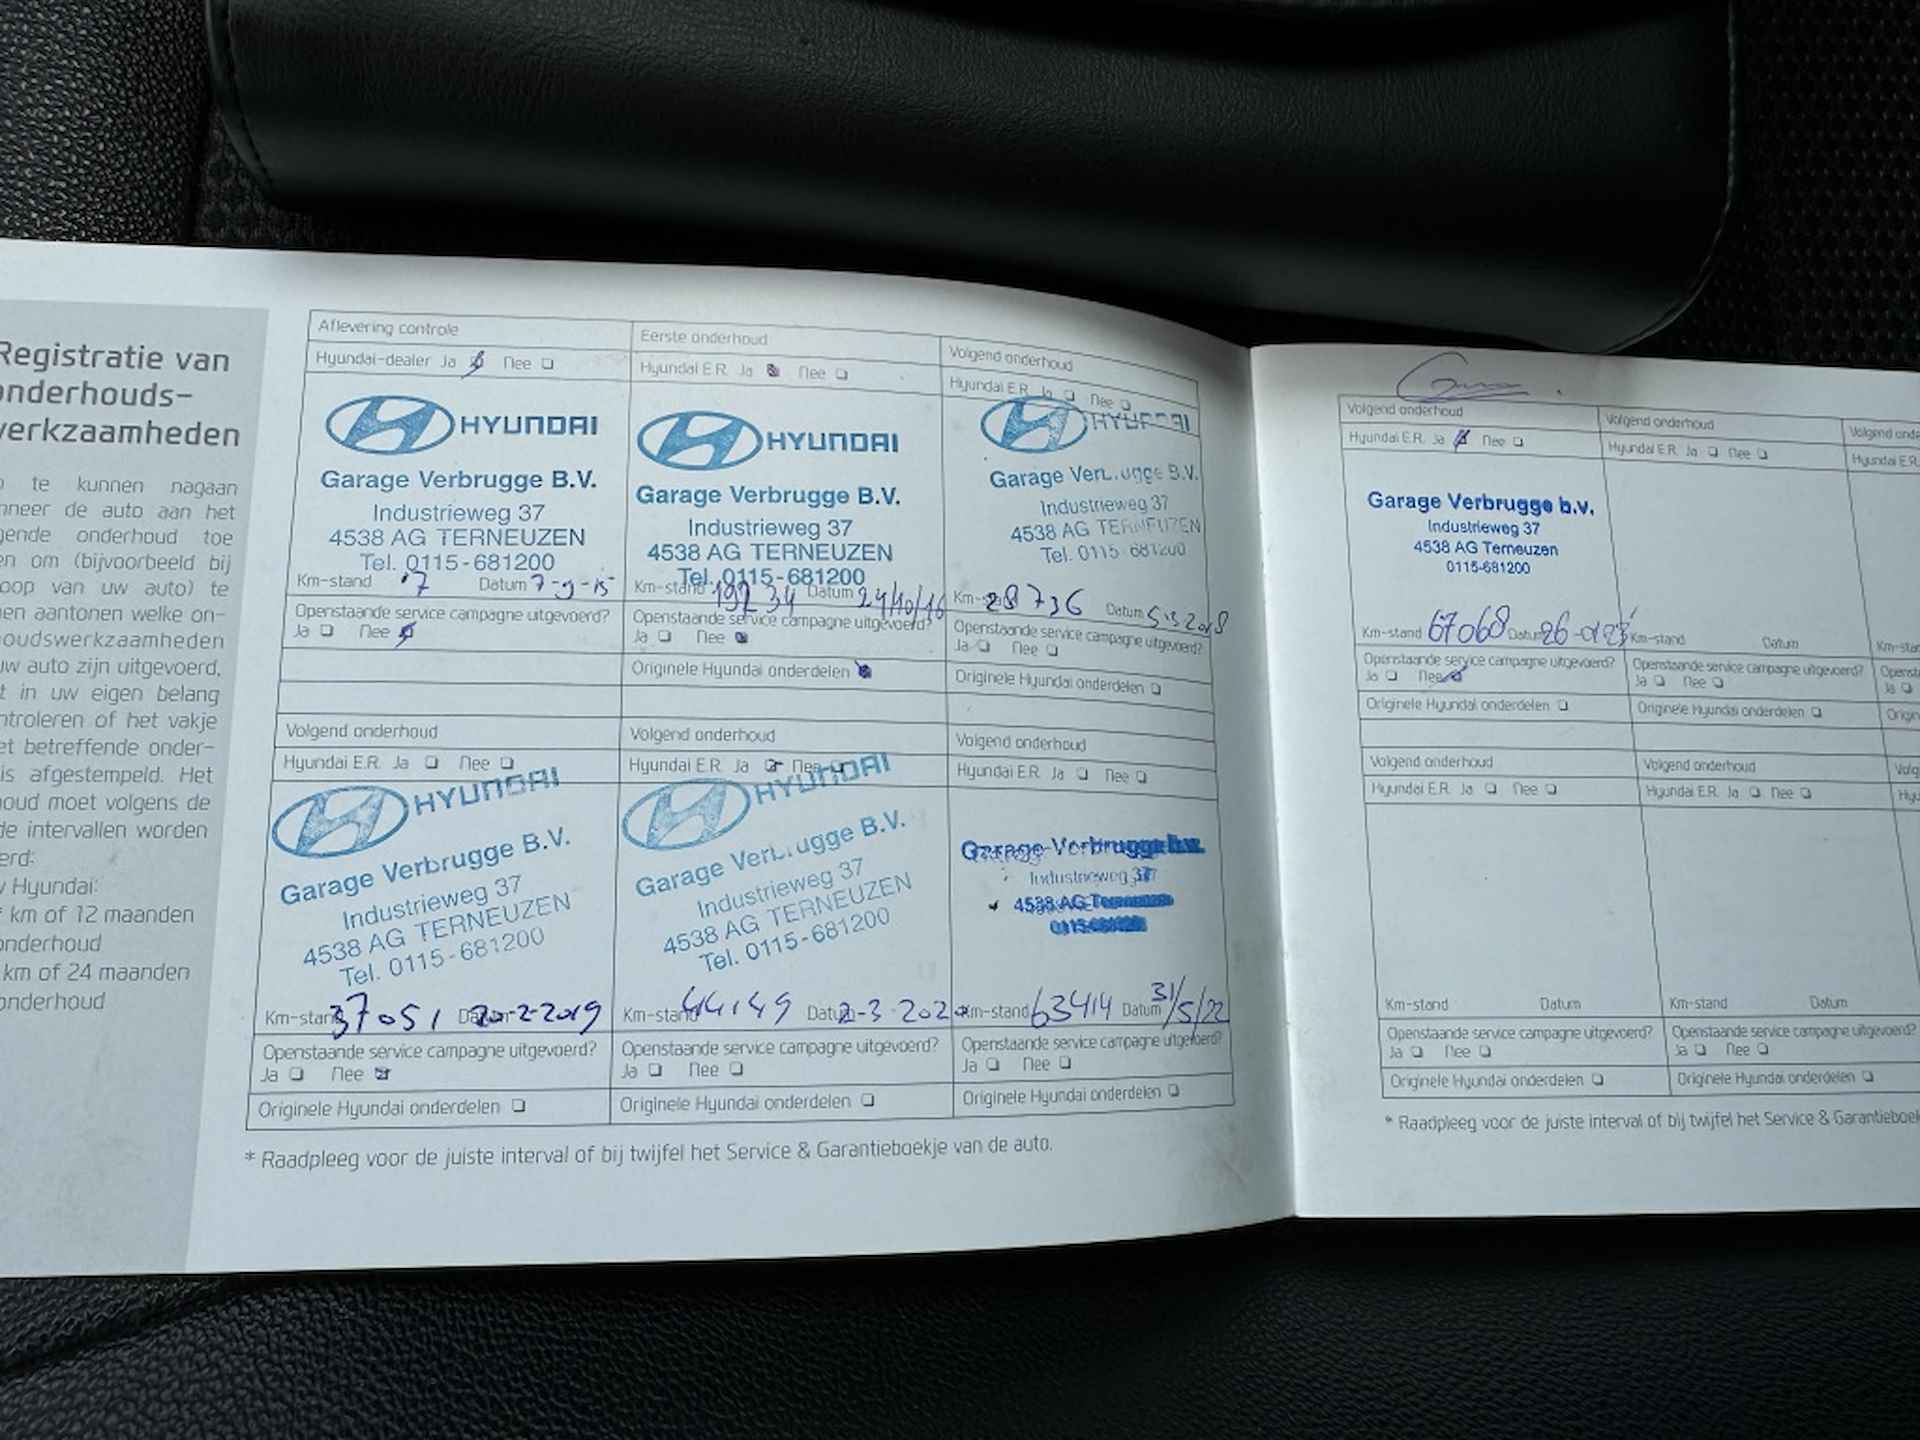 Registratie van
onderhouds-
werkzaamheden
te kunnen nagaan
de auto aan het
onderhoud toe
om (bijvoorbeeld bij
van uw auto) te
aantonen welke on-
houdswerkzaamheden
uw auto zijn uitgevoerd,
in uw eigen belang
of het vakje
betreffende onder-
is afgestempeld. Het
moet volgens de
intervallen worden
Hyundai:
km of 12 maanden
onderhoud
km of 24 maanden
onderhoud
Aflevering controle
Hyundai-dealer Ja Nee
HYUNDAI
Garage Verbrugge B.V.
Industrieweg 37
4538 AG TERNEUZEN
Tel. 0115-681200
Km-stand 7 Datum 7-9-15
Openstaande service campagne uitgevoerd?
Ja Nee
Eerste onderhoud
Hyundai E.R. Ja Nee
HYUNDAI
Garage Verbrugge B.V.
Industrieweg 37
4538 AG TERNEUZEN
Tel. 0115-681200
Km-stand 19234 Datum 24/10/16
Openstaande service campagne uitgevoerd?
Ja Nee
Originele Hyundai onderdelen
Volgend onderhoud
Hyundai E.R. Ja Nee
HYUNDAI
Garage Verbrugge B.V.
Industrieweg 37
4538 AG TERNEUZEN
Tel. 0115-681200
28736 Datum 2018
Openstaande service campagne uitgevoerd?
Ja Nee
Originele Hyundai onderdelen
Volgend onderhoud
Hyundai E.R. Ja Nee
HYUNDAI
Garage Verbrugge B.V.
Industrieweg 37
4538 AG TERNEUZEN
Tel. 0115-681200
Km-stand 37051 Datum 20-2-2019
Openstaande service campagne uitgevoerd?
Ja Nee
Originele Hyundai onderdelen
Volgend onderhoud
Hyundai E.R. Ja Nee
HYUNDAI
Garage Verbrugge B.V.
Industrieweg 37
4538 AG TERNEUZEN
Tel. 0115-681200
Km-stand 44149 Datum 2-3-2020
Openstaande service campagne uitgevoerd?
Ja Nee
Originele Hyundai onderdelen
Volgend onderhoud
Hyundai E.R. Ja Nee
Garage Verbrugge b.v.
Industrieweg 37
4538 AG Terneuzen
0115-681200
Km-stand 63414 Datum 31/5/22
Openstaande service campagne uitgevoerd?
Ja Nee
Originele Hyundai onderdelen
* Raadpleeg voor de juiste interval of bij twijfel het Service & Garantieboekje van de auto.
Volgend onderhoud
Hyundai E.R. Ja Nee
Garage Verbrugge b.v.
Industrieweg 37
4538 AG Terneuzen
0115-681200
Km-stand 67068 Datum 26-01-23
Openstaande service campagne uitgevoerd?
Ja Nee
Originele Hyundai onderdelen
Volgend onderhoud
Hyundai E.R. Ja Nee
Km-stand Datum
Openstaande service campagne uitgevoerd?
Ja Nee
Originele Hyundai onderdelen
Volgend
Hyundai E.R.
Ja
Volgend onderhoud
Hyundai E.R. Ja Nee
Km-stand Datum
Openstaande service campagne uitgevoerd?
Ja Nee
Originele Hyundai onderdelen
Volgend onderhoud
Hyundai E.R. Ja Nee
Km-stand Datum
Openstaande service campagne uitgevoerd?
Ja Nee
Originele Hyundai onderdelen
* Raadpleeg voor de juiste interval of bij twijfel het Service & Garantieboek